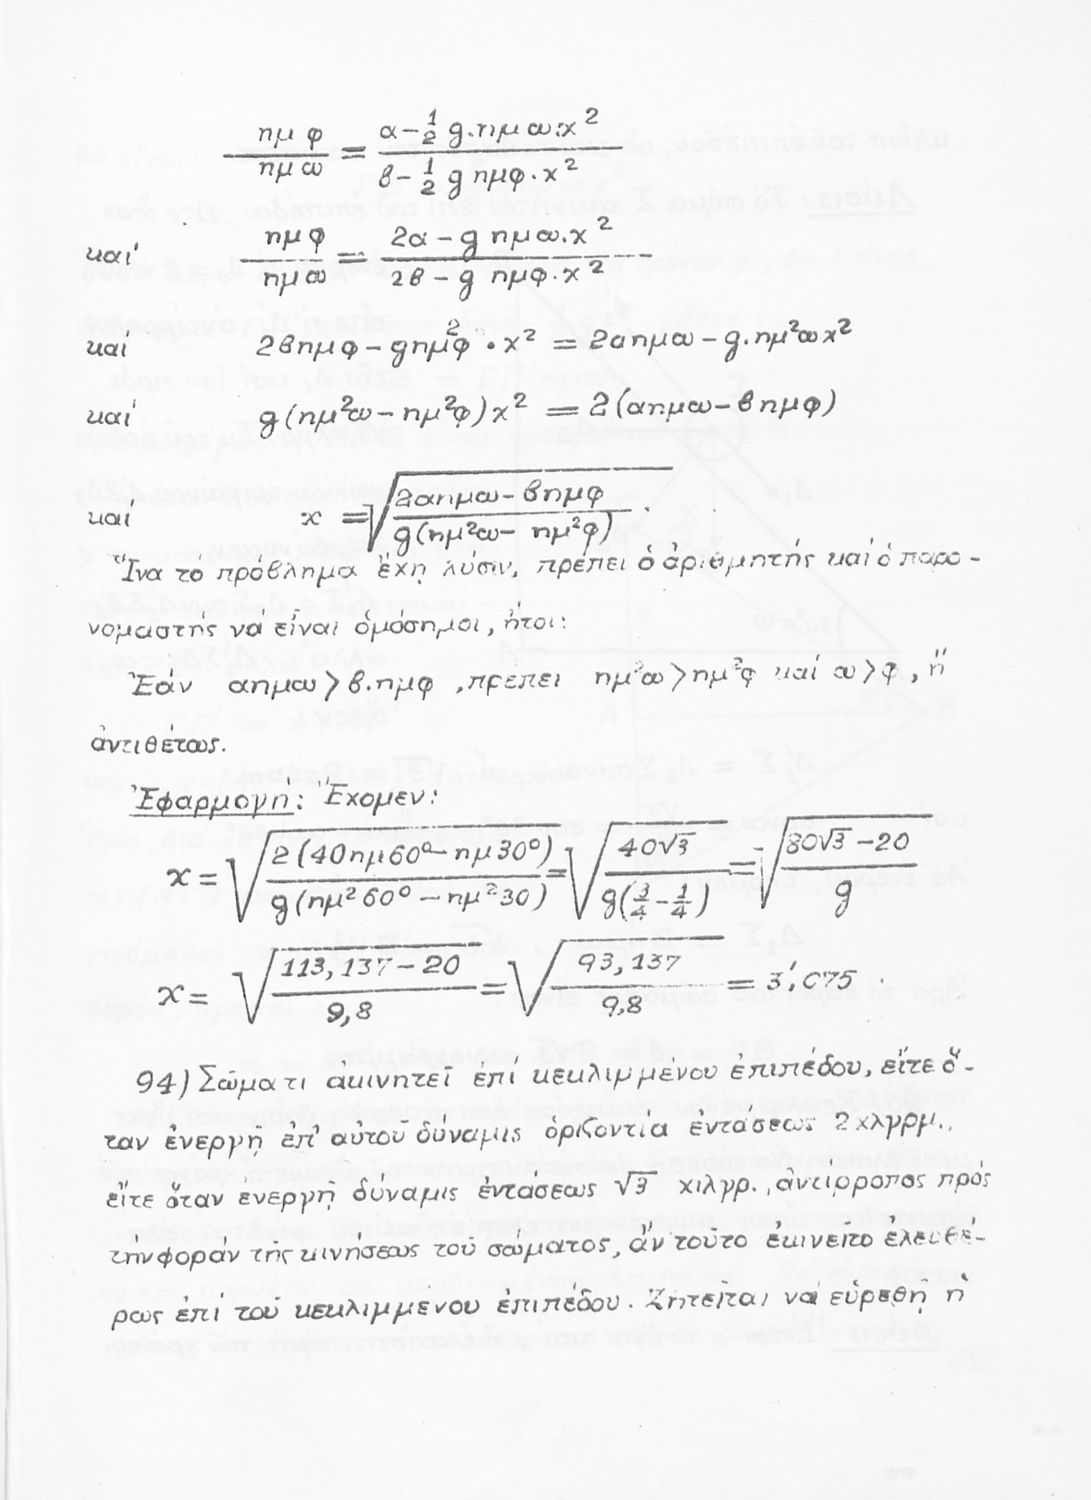 ημ φ / ημ ω = (α − 1/2 g.ημ ω.x²) / (β − 1/2 g ημφ.x²)
καί ημ φ / ημ ω = (2α − g ημω.x²) / (2β − g ημφ.x²)
καί 2βημφ − gημ²φ • x² = 2αημω − g.ημ²ωx²
καί g(ημ²ω − ημ²φ)x² = 2(αημω − βημφ)
καί x = √((2αημω − βημφ) / (g(ημ²ω − ημ²φ))).
Ἵνα το πρόβλημα ἔχῃ λύσιν, πρέπει ὁ ἀριθμητής καί ὁ παρο-
νομαστής νά εἶναι ὁμόσημοι, ἤτοι:
Ἐάν αημω > β.ημφ, πρέπει ημ²ω > ημ²φ καί ω > φ, ἤ
ἀντιθέτως.
Ἐφαρμογή: Ἔχομεν:
x = √(2(40ημ60° − ημ30°) / (g(ημ²60° − ημ²30))) = √(40√3 / (g(3/4 − 1/4))) = √((80√3 − 20) / g)
x = √((113,137 − 20) / 9,8) = √(93,137 / 9,8) = 3,΄075.
94) Σῶμα τι ἀκινητεῖ ἐπί κεκλιμμένου ἐπιπέδου, εἴτε ὅ-
ταν ἐνεργῇ ἐπ' αὐτοῦ δύναμις ὁριζοντία ἐντάσεως 2 χλγρμ.,
εἴτε ὅταν ἐνεργῇ δύναμις ἐντάσεως √3 χιλγρ., ἀντίρροπος πρός
τήν φοράν τῆς κινήσεως τοῦ σώματος, ἄν τοῦτο ἐκινεῖτο ἐλευθέ-
ρως ἐπί τοῦ κεκλιμμένου ἐπιπέδου. Ζητεῖται νά εὑρεθῇ ἡ